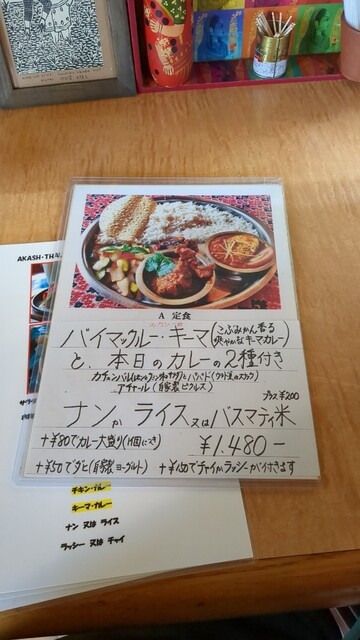 AKASH・THA
A 定食
バイマックルー・キーマ(こぶみかん香る爽やかなキーマカレー)
と、本日のカレーの2種付き
アチャール(自家製ピクルス)
プラス¥200
ナンかライス又はバスマティ米
+¥80でカレー大盛り(1個につき) ¥1,480-
+¥50でダヒ(自家製ヨーグルト) +¥150でチャイかラッシーがバイ付きます
チキン・カレー
キーマ・カレー
ナン 又は ライス
ラッシー 又は チャイ